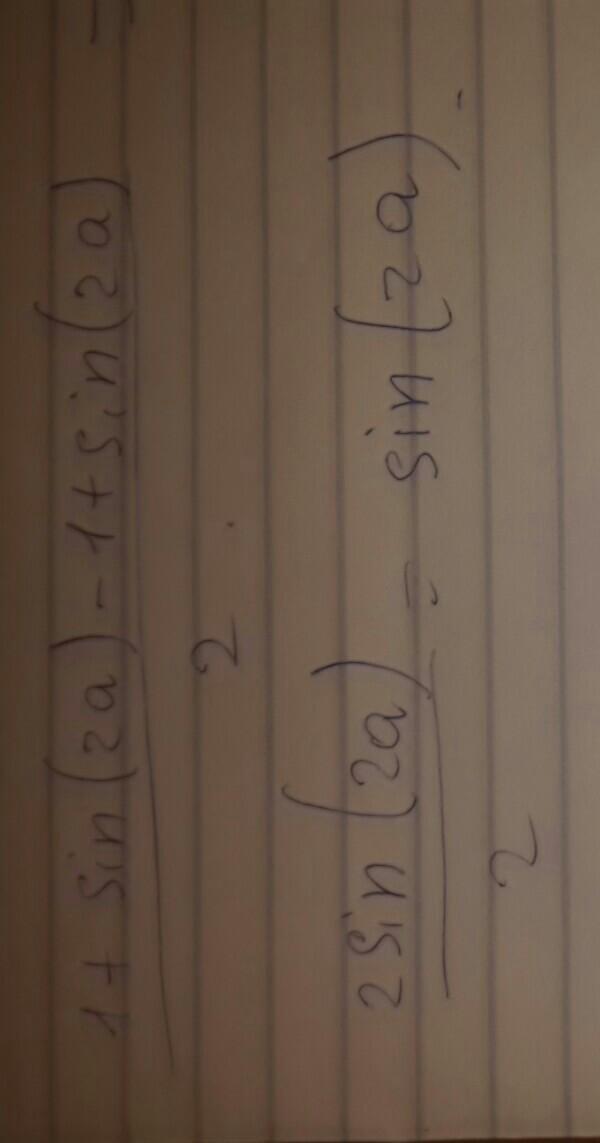 1 + sin(2a) - 1 + sin(2a) =
2
2 sin(2a) = sin(2a).
2